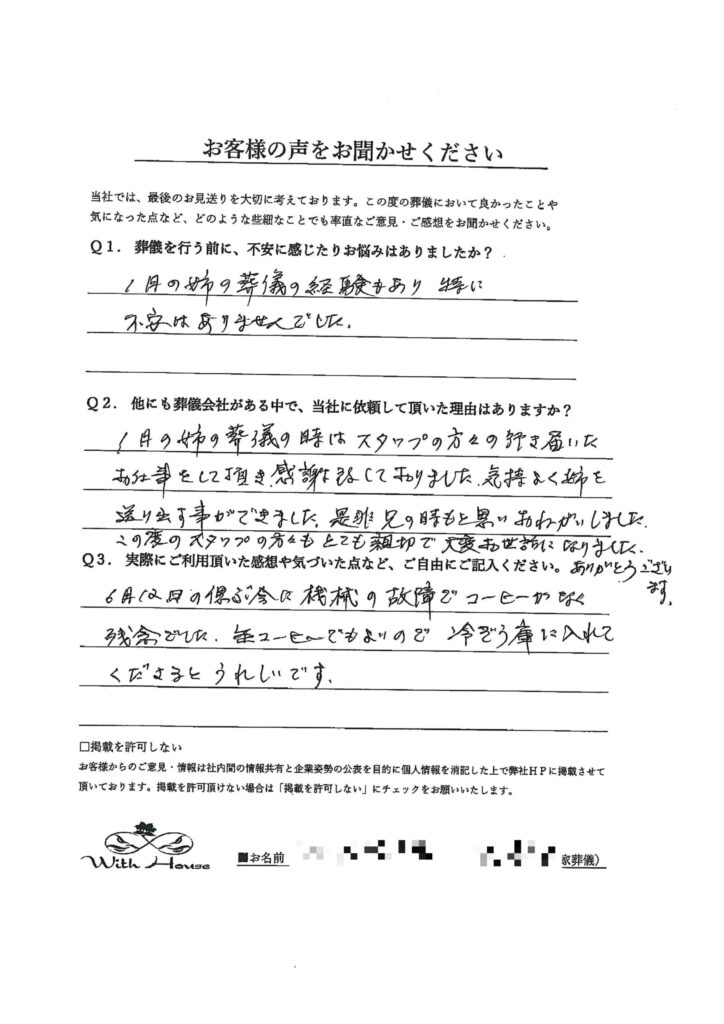 お客様の声をお聞かせください
当社では、最後のお見送りを大切に考えております。この度の葬儀において良かったことや
気になった点など、どのような些細なことでも率直なご意見・ご感想をお聞かせください。
Q1．葬儀を行う前に、不安に感じたりお悩みはありましたか？
1月の姉の葬儀の経験もあり 特に
不安はありませんでした。
Q2．他にも葬儀会社がある中で、当社に依頼して頂いた理由はありますか？
1月の姉の葬儀の時はスタッフの方々の行き届いた
お仕事をして頂き、感謝致しておりました。気持よく姉を
送り出す事ができました。是非兄の時もと思いおねがいしました。
この度のスタッフの方々もとても親切で大変お世話になりました。
ありがとうござい
ます。
Q3．実際にご利用頂いた感想や気づいた点など、ご自由にご記入ください。
6月12日の偲ぶ会に機械の故障でコーヒーがなく
残念でした。缶コーヒーでもよいので 冷ぞう庫に入れて
くださるとうれしいです。
□掲載を許可しない
お客様からのご意見・情報は社内間の情報共有と企業姿勢の公表を目的に個人情報を消記した上で弊社HPに掲載させて
頂いております。掲載を許可頂けない場合は「掲載を許可しない」にチェックをお願いいたします。
With House
■お名前
家葬儀）